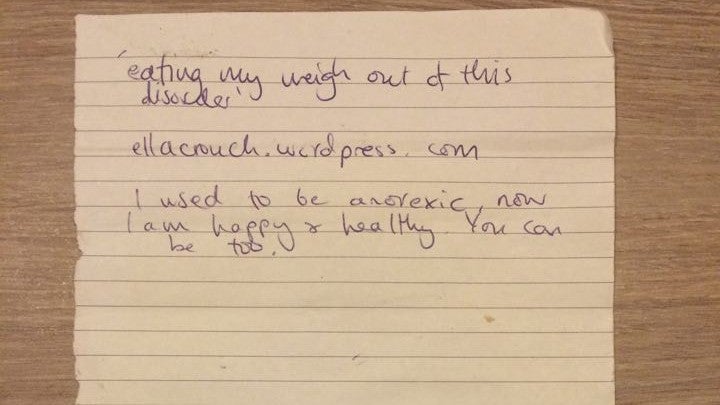 'eating my weigh out of this
disorder'
ellacrouch.wordpress.com
I used to be anorexic, now
I am happy & healthy. You can
be too.